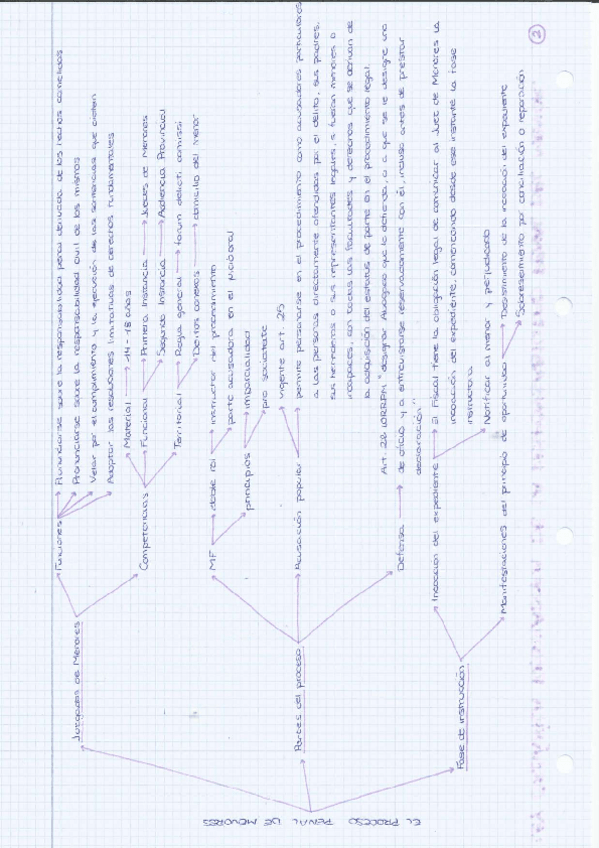 EL PROCESO PENAL DE MENORES
2
Juzgados de Menores
Funciones
Pronunciarse sobre la responsabilidad penal derivada de los hechos cometidos
Pronunciarse sobre la responsabilidad civil de los mismos
Velar por el cumplimiento y la ejecución de las sentencias que dicten
Adoptar las resoluciones limitativas de derechos fundamentales
Competencias
Material → 14 - 18 años
Funcional
Primera Instancia → Jueces de Menores
Segunda Instancia → Audiencia Provincial
Territorial
Regla general → forum delicti comissi
Delitos conexos → domicilio del menor
Partes del proceso
MF
doble rol
instructor del procedimiento
parte acusadora en el
principios
imparcialidad
pro societate
Acusación popular
vigente art. 25
permite personarse en el procedimiento como acusadores particulares
a las personas directamente ofendidas por el delito, sus padres,
sus herederos o sus representantes legales, si fueran menores o
incapaces, con todas las facultades y derechos que se derivan de
la adquisición del estatus de parte en el procedimiento legal.
Defensa
Art. 22 LORRPM "designar Abogado que le defienda, o a que se le designe uno
de oficio y a entrevistarse reservadamente con él, incluso antes de prestar
declaración"
Fase de instrucción
Incoación del expediente
El Fiscal tiene la obligación legal de comunicar al Juez de Menores la
incoación del expediente, comenzando desde ese instante la fase
instructora
Notificar al menor y perjudicado
Manifestaciones del principio de oportunidad
Desistimiento de la incoación del expediente
Sobreseimiento por conciliación o reparación